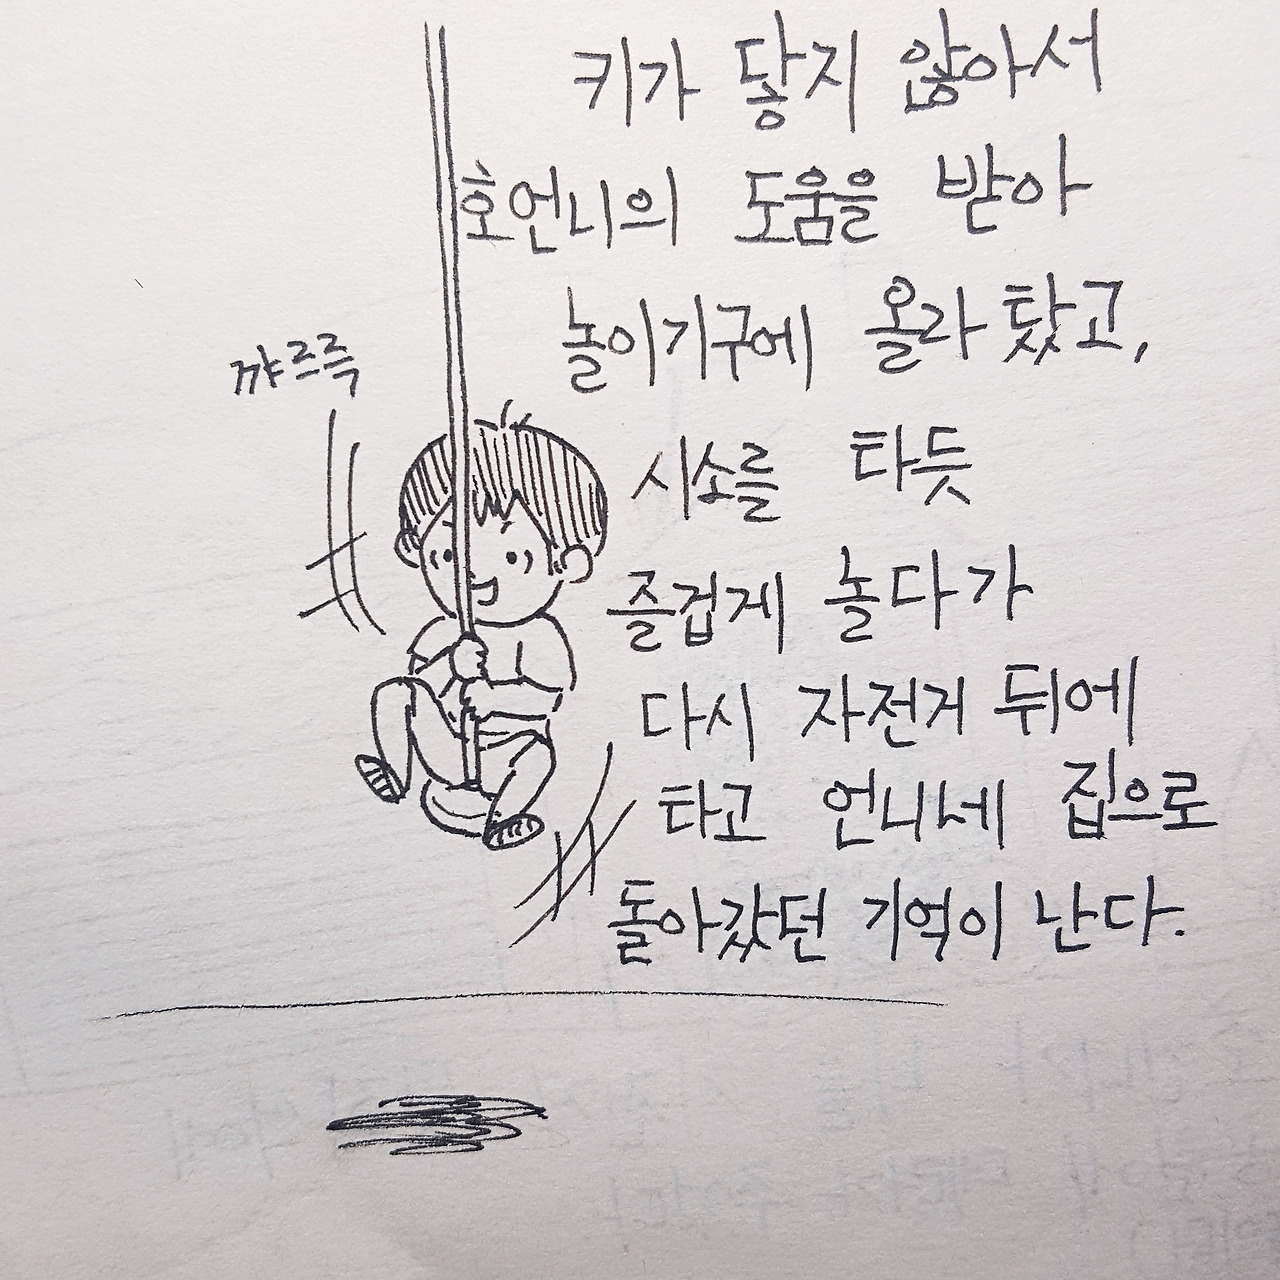 키가 닿지 않아서
호언니의 도움을 받아
놀이기구에 올라 탔고,
꺄르륵
시소를 타듯
즐겁게 놀다가
다시 자전거 뒤에
타고 언니네 집으로
돌아갔던 기억이 난다.